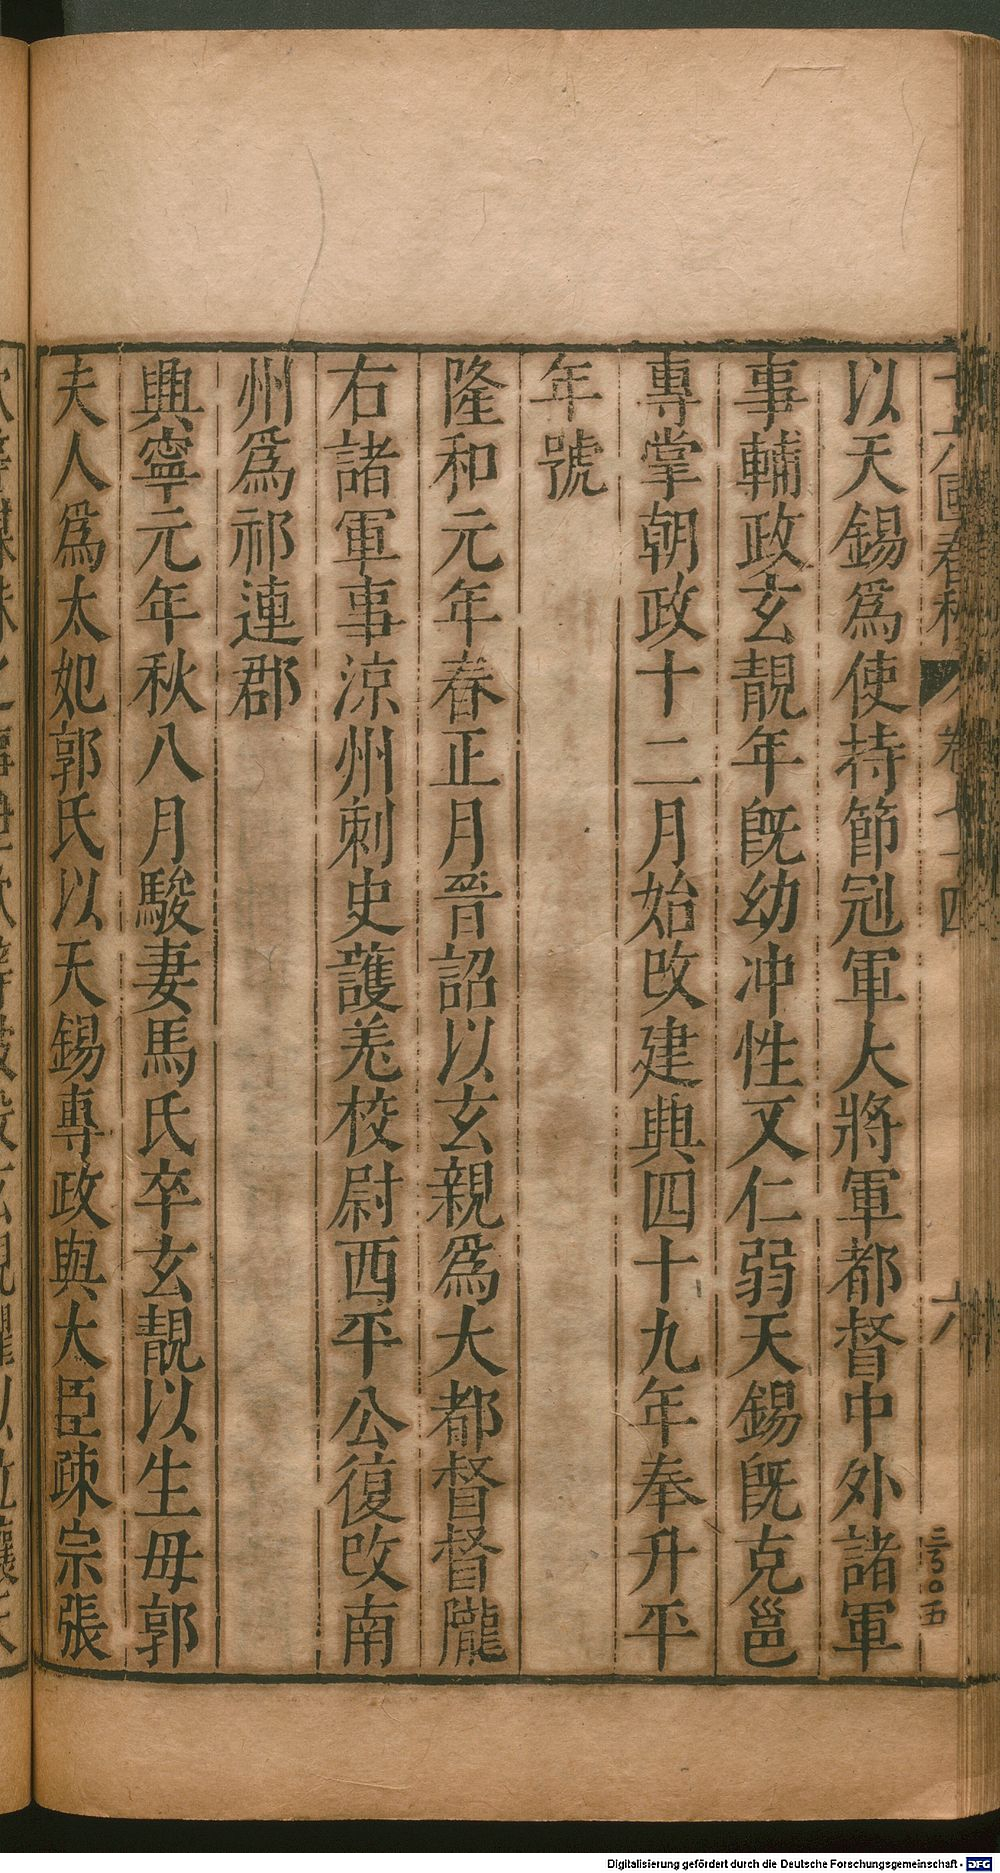 十六國春秋 卷七十四 六
以天錫爲使持節冠軍大將軍都督中外諸軍
事輔政玄靚年旣幼冲性又仁弱天錫旣克邕
專掌朝政十二月始改建興四十九年奉升平
年號
隆和元年春正月晉詔以玄親爲大都督督隴
右諸軍事涼州刺史護羌校尉西平公復改南
州爲祁連郡
興寧元年秋八月駿妻馬氏卒玄靚以生母郭
夫人爲太妃郭氏以天錫專政與大臣疎宗張
Digitalisierung gefördert durch die Deutsche Forschungsgemeinschaft - DFG